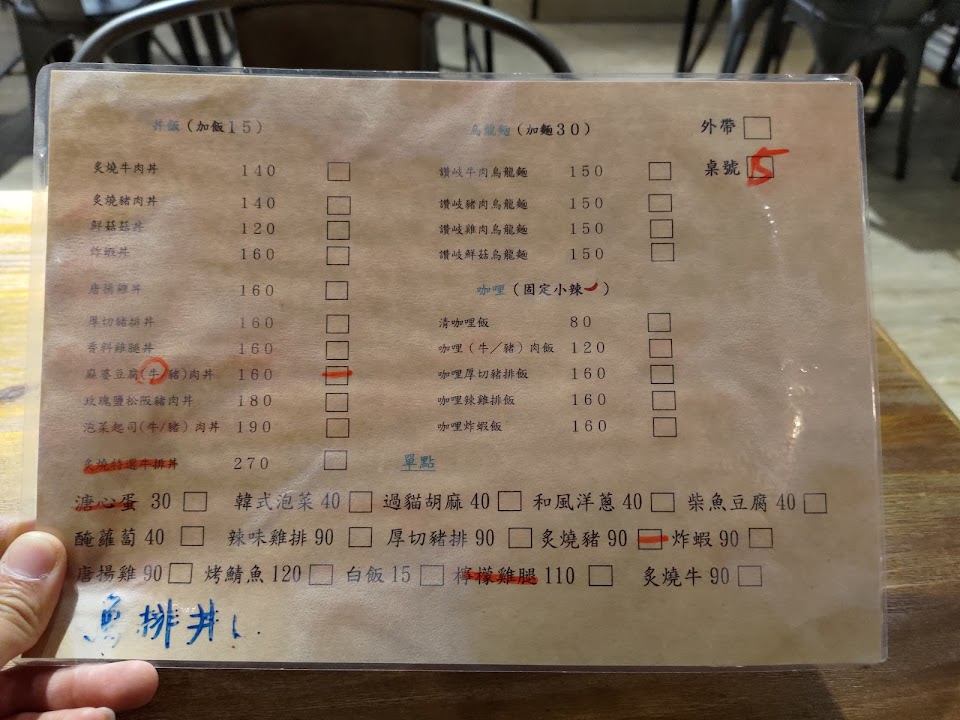 丼飯(加飯15)
炙燒牛肉丼 140
炙燒豬肉丼 140
鮮菇菇丼 120
炸蝦丼 160
唐揚雞丼 160
厚切豬排丼 160
香料雞腿丼 160
麻婆豆腐(牛/豬)肉丼 160
玫瑰鹽松阪豬肉丼 180
泡菜起司(牛/豬)肉丼 190
炙燒特選牛排丼 270
烏龍麵(加麵30)
讚岐牛肉烏龍麵 150
讚岐豬肉烏龍麵 150
讚岐雞肉烏龍麵 150
讚岐鮮菇烏龍麵 150
咖哩(固定小辣)
清咖哩飯 80
咖哩(牛/豬)肉飯 120
咖哩厚切豬排飯 160
咖哩辣雞排飯 160
咖哩炸蝦飯 160
外帶
桌號 5
單點
溏心蛋 30 韓式泡菜 40 過貓胡麻 40 和風洋蔥 40 柴魚豆腐 40
醃蘿蔔 40 辣味雞排 90 厚切豬排 90 炙燒豬 90 炸蝦 90
唐揚雞 90 烤鯖魚 120 白飯 15 檸檬雞腿 110 炙燒牛 90
魚排丼